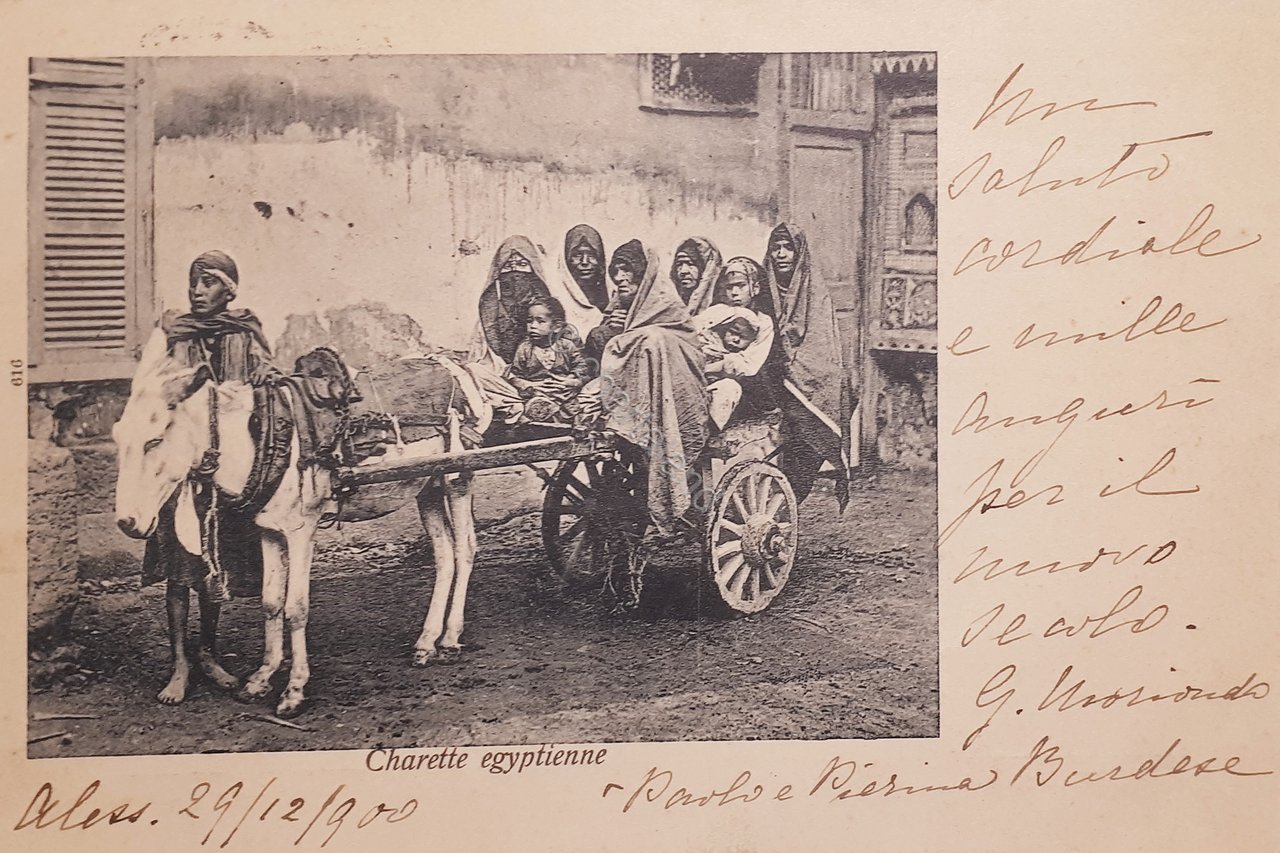 Un
saluto
cordiale
e mille
auguri
per il
nuovo
secolo.
G. Moriondo
Paolo e Pierina Burdese
Charette egyptienne
Aless. 29/12/900
616